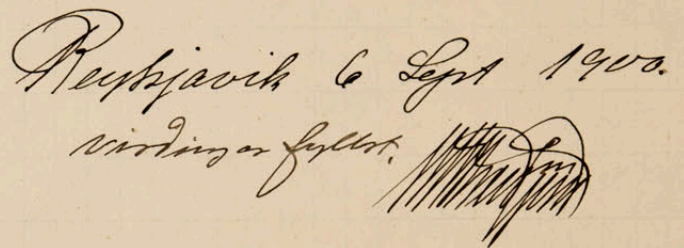 Reykjavik 6 Sept 1900.
virdingar fyllst.